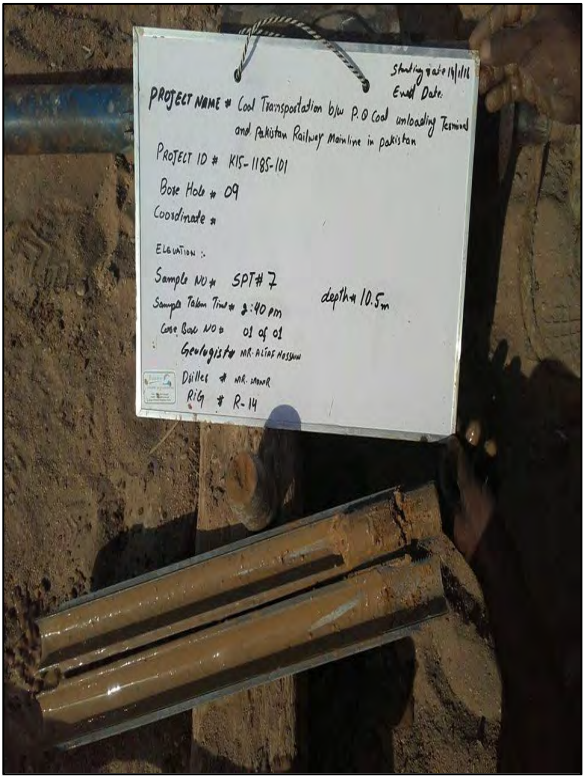 Starting Date
End Date:
PROJECT NAME # Coal Transportation b/w P.Q Coal unloading Terminal
and Pakistan Railway Mainline in pakistan
PROJECT ID # K15-1185-101
Bore Hole # 09
Coordinate #
ELEVATION :-
Sample NO # SPT # 7
depth # 10.5m
Sample Taken Time # 2:40 pm
Core Box NO # 01 of 01
Geologist # MR. ALTAF HUSSAIN
Driller # MR.
RiG # R-14